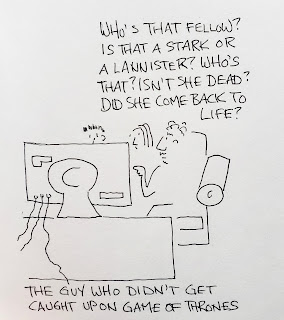 WHO'S THAT FELLOW?
IS THAT A STARK OR
A LANNISTER? WHO'S
THAT? ISN'T SHE DEAD?
DID SHE COME BACK TO
LIFE?
THE GUY WHO DIDN'T GET
CAUGHT UP ON GAME OF THRONES